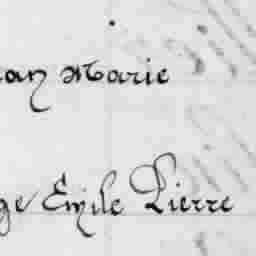 an Marie
ge Emile Pierre